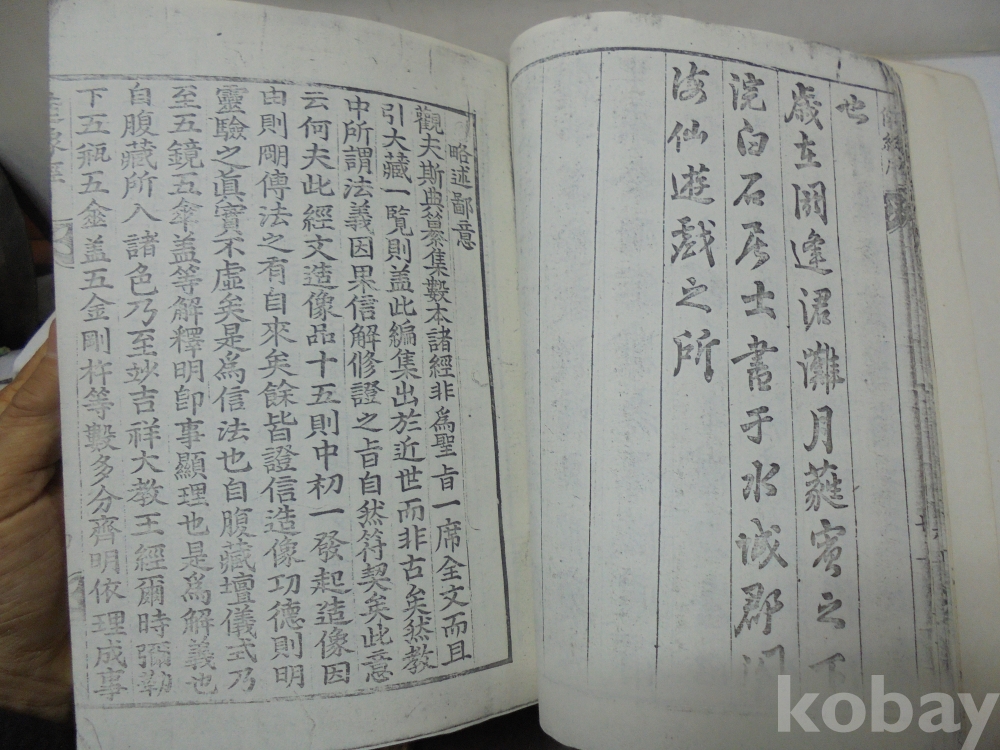 也
歲在閼逢涒灘月蕤賓之下
浣白石居士書于水城郡
海仙遊戲之所
略述鄙意
觀夫斯典纂集數本諸經非爲聖旨一席全文而且
引大藏一覽則盖此編集出於近世而非古矣然教
中所謂法義因果信解修證之旨自然符契矣此意
云何夫此經文造像品十五則中初一發起造像因
由則剛傳法之有自來矣餘皆證信造像功德則明
靈驗之眞實不虛矣是爲信法也自腹藏壇儀式乃
至五鏡五傘盖等解釋明卽事顯理也是爲解義也
自腹藏所入諸色乃至妙吉祥大教王經爾時彌勒
下五瓶五盒盖五金剛杵等數多分齊明依理成事
kobay